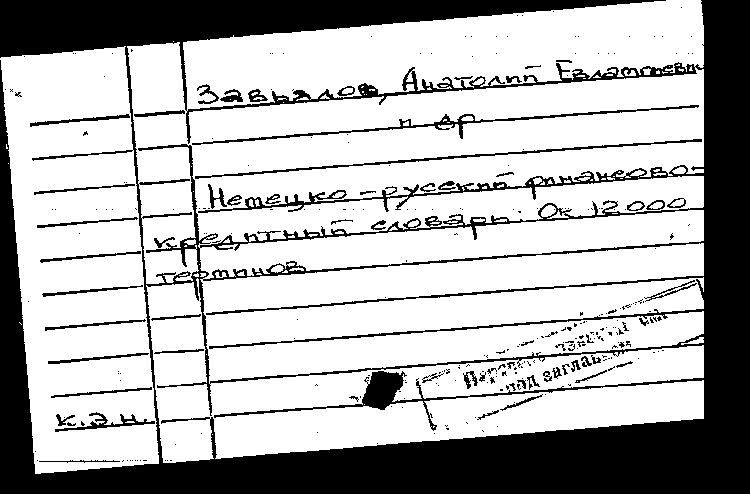 Завьялов, Анатолий Евлампиеви
и др.
Немецко-русский финансово-
кредитный словарь: Ок. 12000
терминов
к.э.н.
под заглав